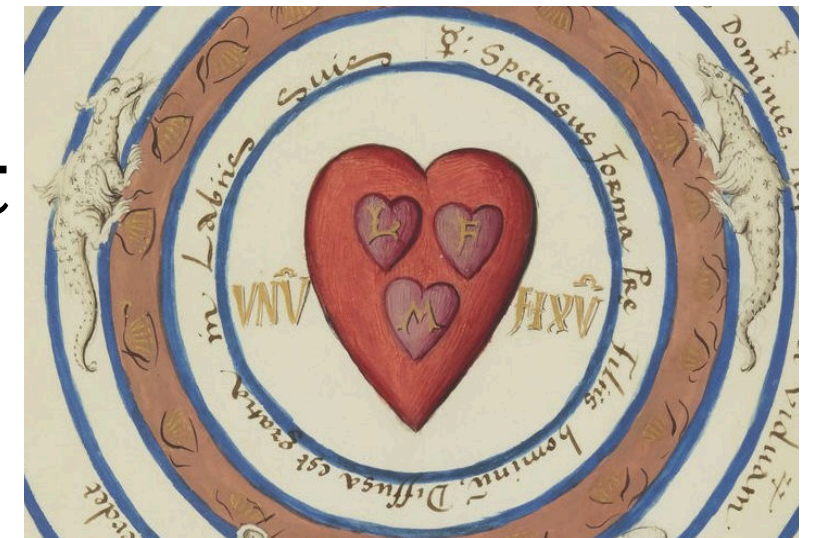 ☿: Spetiosus forma Pre filiis hominū, Diffusa est gratia in Labiis Suis
L F
M
VNV̂ FIXV̂
Dominus,
Viduam
erdet
t